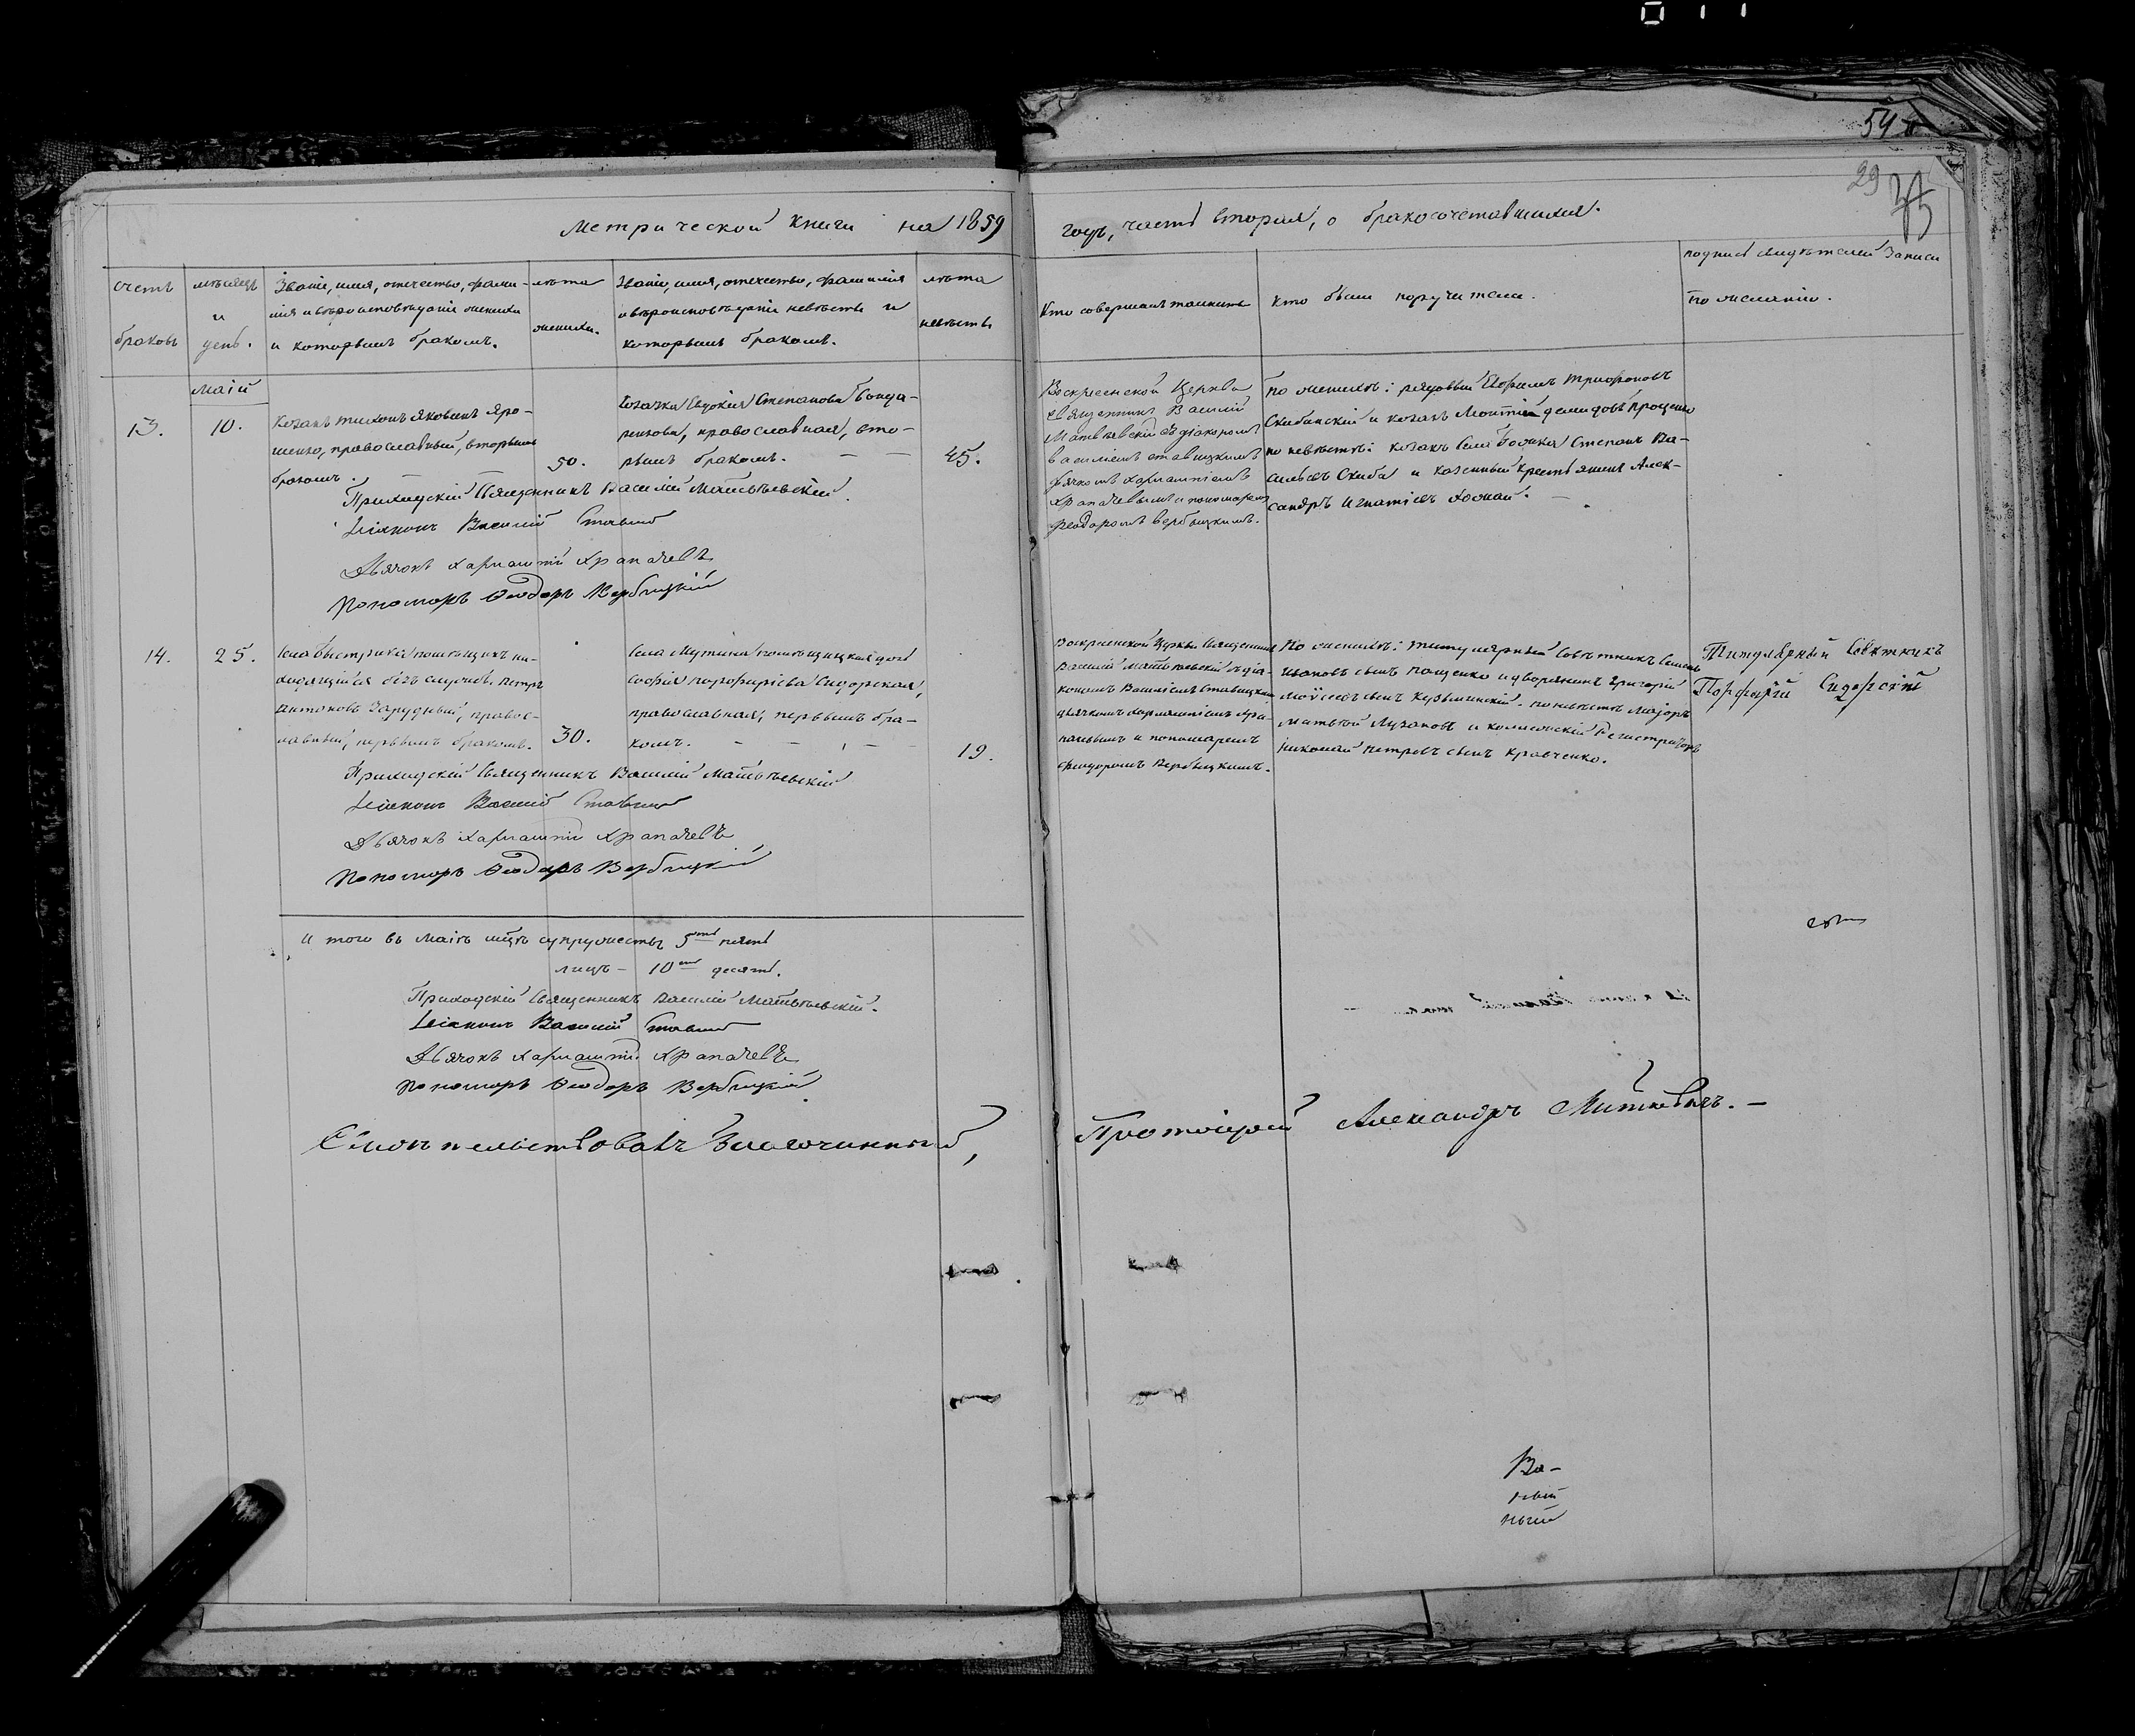 54
29
Метрической книги на 1859
годъ, часть вторая, о бракосочетавшихся.
счетъ
браковъ
мѣсяцъ
и
день.
Званіе, имя, отчество, фами-
лія и вѣроисповѣданіе жениха
и которымъ бракомъ.
лѣта
жениха.
Званіе, имя, отчество, фамилія
и вѣроисповѣданіе невѣсты и
которымъ бракомъ.
лѣта
невѣсты
Кто совершалъ таинство
Кто были поручители.
подпись свидѣтелей записи
по желанію.
Маій
13.
10.
Козакъ Тихонъ Яковлевъ Яро-
шенко, православный, вторымъ
бракомъ.
50.
Козачка Евдокія Степанова Бонда-
ренкова, православная, вто-
рымъ бракомъ.
45.
Воскресенской Церкви
Священникъ Василій
Матвѣевскій съ діакономъ
Василіемъ Ставицкимъ
дьячкомъ Харлампіемъ
Храпачевымъ и пономаремъ
Феодоромъ Вербицкимъ.
по женихѣ: рядовый Трифоновъ
Скибинскій и козакъ Демидовъ Проценко
по невѣстѣ: козакъ Села Степанъ Ва-
сильевъ Скиба и казенный крестьянинъ Алек-
сандръ Игнатіевъ
Приходскій Священникъ Василій Матвѣевскій.
Діаконъ Василій
Дьячокъ Харлампій Храпачевъ
Пономарь Ѳеодоръ Вербицкій
14.
25.
Села Быстрика помѣщикъ на-
ходящійся безъ службы Петръ
Антоновъ Зарудный, правос-
лавный, первымъ бракомъ.
30.
Села Мутина помѣщицкая дочь
Софія Порфиріева Сидорская,
православная, первымъ бра-
комъ.
19.
Воскресенской Церкви Священникъ
Василій Матвѣевскій съ діа-
кономъ Василіемъ Ставицкимъ
дьячкомъ Харлампіемъ Хра-
пачевымъ и пономаремъ
Феодоромъ Вербицкимъ.
По женихѣ: титулярный Совѣтникъ Семенъ
Ивановъ сынъ Пащенко и дворянинъ Григорій
Моѵсеевъ сынъ Кузьминскій. по невѣстѣ Маіоръ
Матвѣй и колежскій Регистраторъ
Николай Петровъ сынъ Кравченко.
Титулярный Совѣтникъ
Порфирій Сидорскій
Приходскій Священникъ Василій Матвѣевскій
Діаконъ Василій
Дьячокъ Харлампій Храпачевъ
Пономарь Ѳеодоръ Вербицкій
И того въ Маіѣ мцѣ супружествъ 5ть пять
лицъ - 10ть десять.
Приходскій Священникъ Василій Матвѣевскій.
Діаконъ Василій
Дьячокъ Харлампій Храпачевъ
Пономарь Ѳеодоръ Вербицкій
Свидѣтельствовалъ Благочинный,
Протоіерей Александръ
Ва-
ный
ный